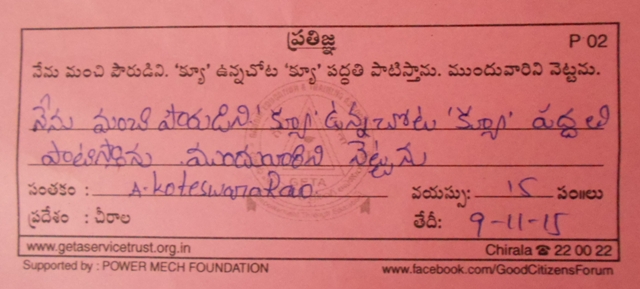 ప్రతిజ్ఞ P 02
నేను మంచి పౌరుడిని. 'క్యూ' ఉన్నచోట 'క్యూ' పద్ధతి పాటిస్తాను. ముందువారిని నెట్టను.
నేను మంచి పౌరుడిని 'క్యూ' ఉన్నచోట 'క్యూ' పద్దతి
పాటిస్తాను ముందువారిని నెట్టను
సంతకం : A-koteswaraRao వయస్సు: 15 సం॥లు
ప్రదేశం : చీరాల తేదీ: 9-11-15
www.getaservicetrust.org.in Chirala ☎ 22 00 22
Supported by : POWER MECH FOUNDATION www.facebook.com/GoodCitizensForum
GETA